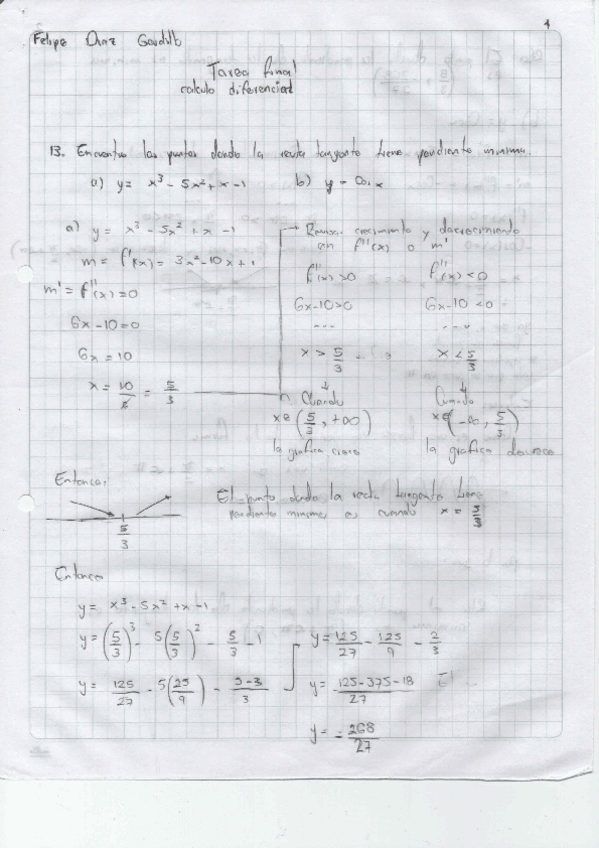 4
Felipe Diaz Gordillo
Tarea final
calculo diferencial
13. Encuentra los puntos donde la recta tangente tiene pendiente minima.
a) y = x³ - 5x² + x - 1 b) y = Cos x
a) y = x³ - 5x² + x - 1
m = f'(x) = 3x² - 10x + 1
m' = f''(x) = 0
6x - 10 = 0
6x = 10
x = 10/6 = 5/3
crecimiento y decrecimiento
f''(x) o m'
f''(x) > 0 f''(x) < 0
6x - 10 > 0 6x - 10 < 0
... ...
x > 5/3 x < 5/3
Cuando Cuando
x∈(5/3, +∞) x∈(-∞, 5/3)
la grafica crece la grafica decrece
Entonces
5/3
El punto donde la recta tangente tiene
pendiente minima es cuando x = 5/3
Entonces
y = x³ - 5x² + x - 1
y = (5/3)³ - 5(5/3)² - 5/3 - 1
y = 125/27 - 5(25/9) - 5-3/3
y = 125/27 - 125/9 - 2/3
y = 125 - 375 - 18/27
y = -268/27